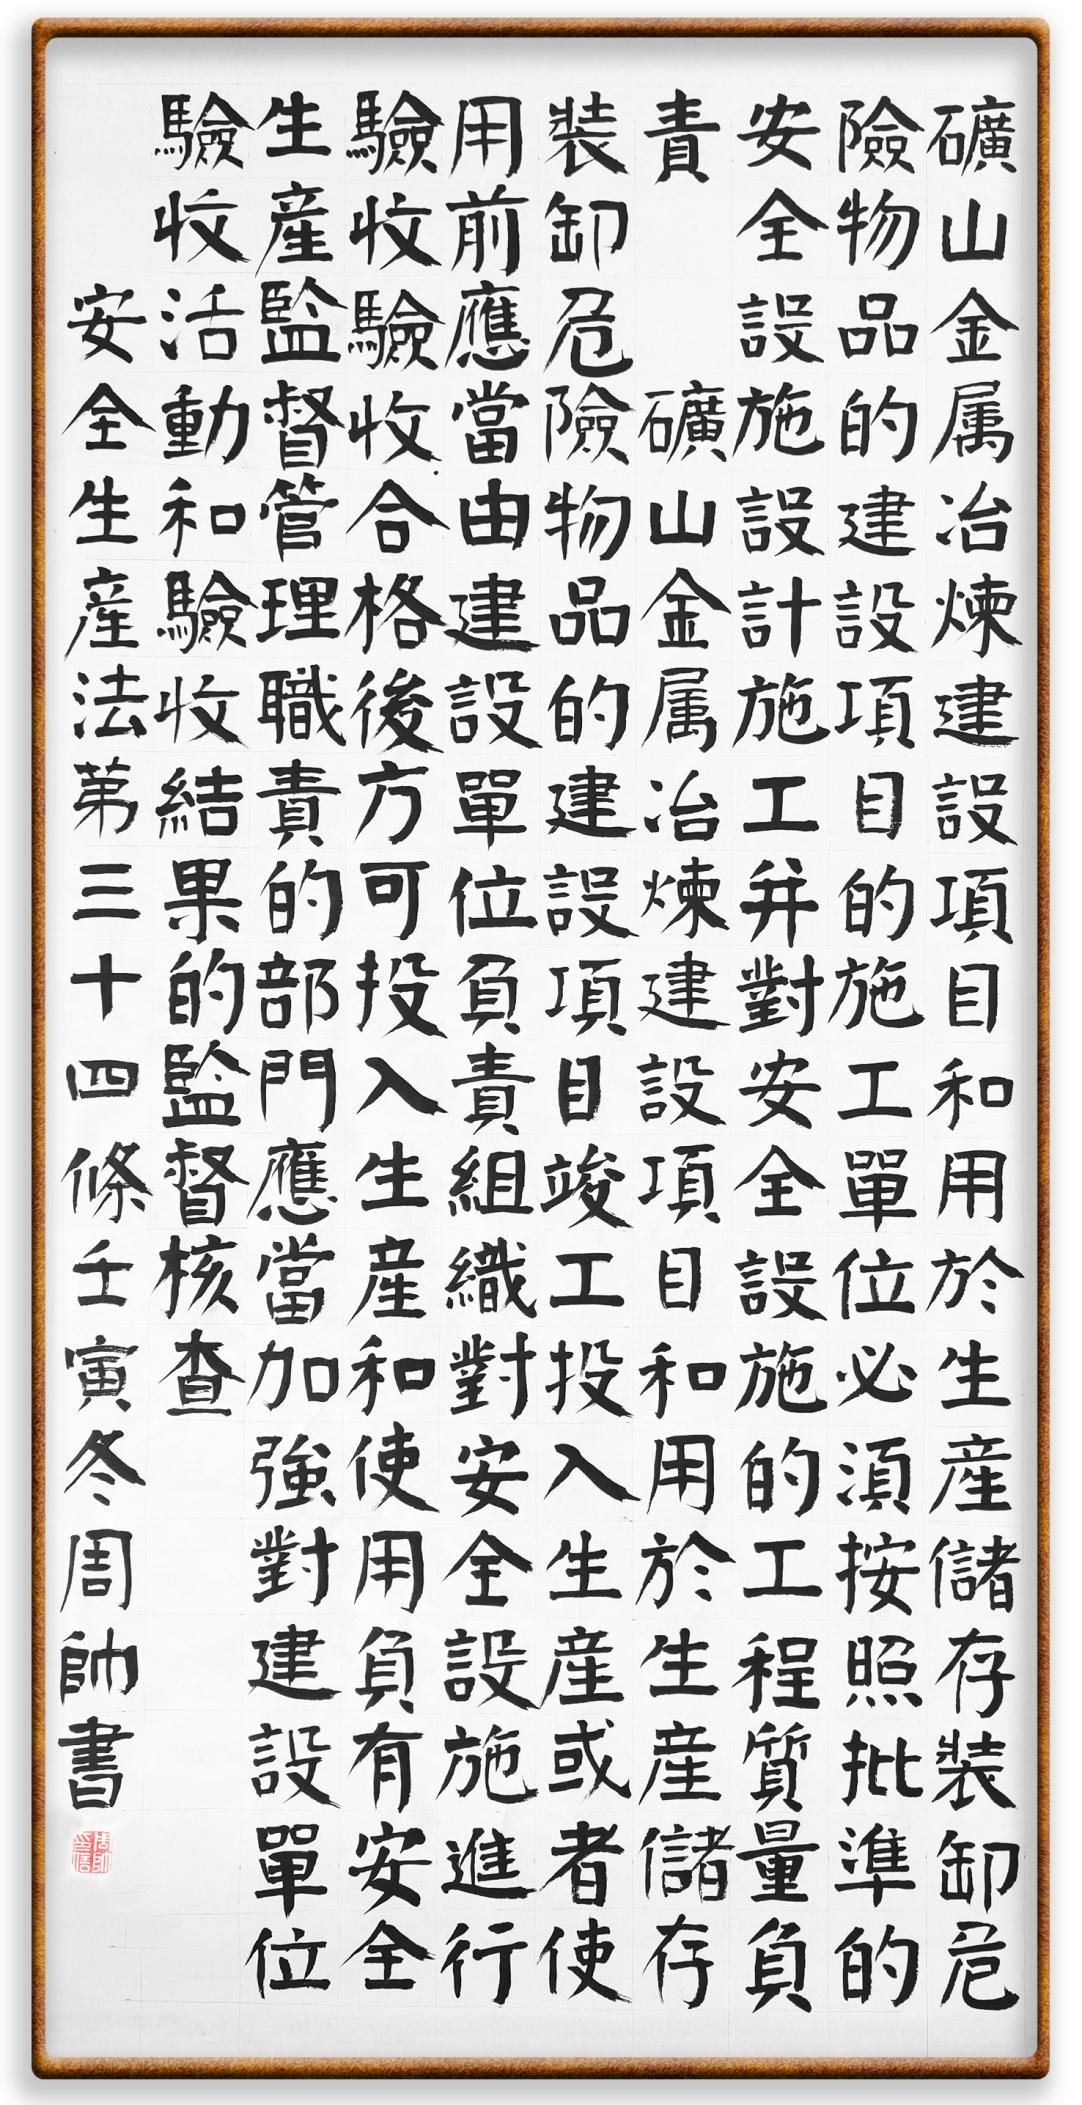 礦山金属冶煉建設項目和用於生産儲存装卸危
險物品的建設項目的施工單位必須按照批準的
安全設施設計施工并對安全設施的工程質量負
責
礦山金属冶煉建設項目和用於生産儲存
装卸危險物品的建設項目竣工投入生産或者使
用前應當由建設單位負責組織對安全設施進行
驗收驗收合格後方可投入生産和使用負有安全
生産監督管理職責的部門應當加強對建設單位
驗收活動和驗收結果的監督核查
安全生産法第三十四條壬寅冬周帥書
周帥印信